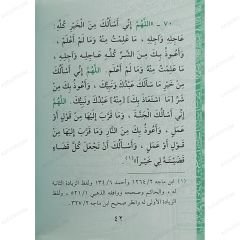 ٧٠ ـ «اللَّهُمَّ إِنِّي أَسْأَلُكَ مِنَ الْخَيْرِ كُلِّهِ:
عَاجِلِهِ وَآجِلِهِ، مَا عَلِمْتُ مِنْهُ وَمَا لَمْ أَعْلَمْ،
وَأَعُوذُ بِكَ مِنَ الشَّرِّ كُلِّهِ عَاجِلِهِ وَآجِلِهِ،
مَا عَلِمْتُ مِنْهُ وَمَا لَمْ أَعْلَمْ. اللَّهُمَّ إِنِّي أَسْأَلُكَ
مِنْ خَيْرِ مَا سَأَلَكَ عَبْدُكَ وَنَبِيُّكَ، وَأَعُوذُ بِكَ مِنْ
شَرِّ مَا اسْتَعَاذَ بِكَ [مِنْهُ] عَبْدُكَ وَنَبِيُّكَ. اللَّهُمَّ
إِنِّي أَسْأَلُكَ الْجَنَّةَ، وَمَا قَرَّبَ إِلَيْهَا مِنْ قَوْلٍ أَوْ
عَمَلٍ، وَأَعُوذُ بِكَ مِنَ النَّارِ وَمَا قَرَّبَ إِلَيْهَا مِنْ قَوْلٍ
أَوْ عَمَلٍ، وَأَسْأَلُكَ أَنْ تَجْعَلَ كُلَّ قَضَاءٍ
قَضَيْتَهُ لِي خَيْراً»(١).
(١) ابن ماجه ١٢٦٤/٢ وأحمد ١٣٤/٦ ولفظ الزيادة الثانية
له، والحاكم وصححه ووافقه الذهبي ٥٢١/١ ولفظ
الزيادة الأولى له وانظر صحيح ابن ماجه ٣٢٧/٢.
٤٢